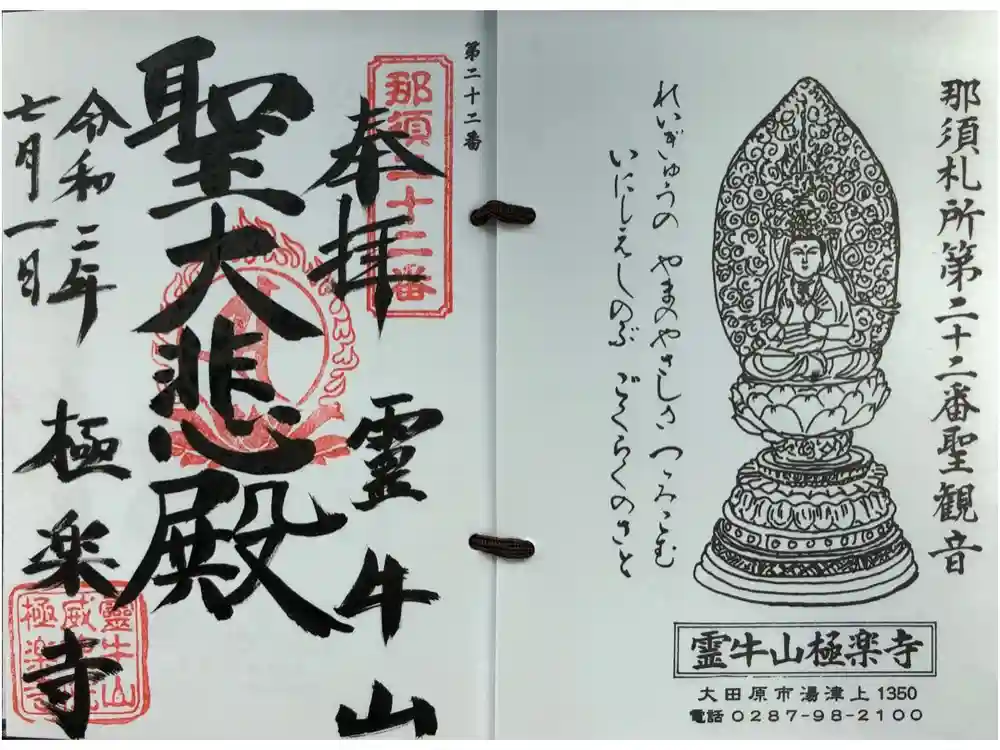 那須札所第二十二番聖観音
れいぎゅうの やまのやさしさ つつみこむ
いにしえしのぶ ごくらくのさと
霊牛山極楽寺
大田原市湯津上1350
電話0287-98-2100
第二十二番
那須二十二番
奉拝 霊牛山
聖大悲殿
令和二年
七月一日
極楽寺